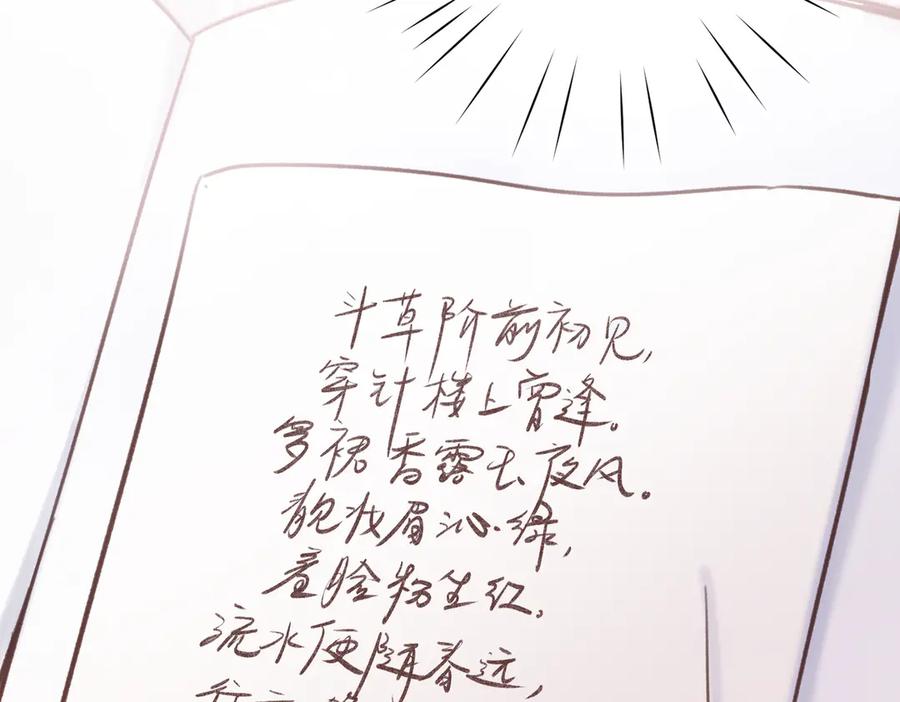 斗草阶前初见，
穿针楼上曾逢。
罗裙香露玉钗风。
靓妆眉沁绿，
羞脸粉生红。
流水便随春远，
行云